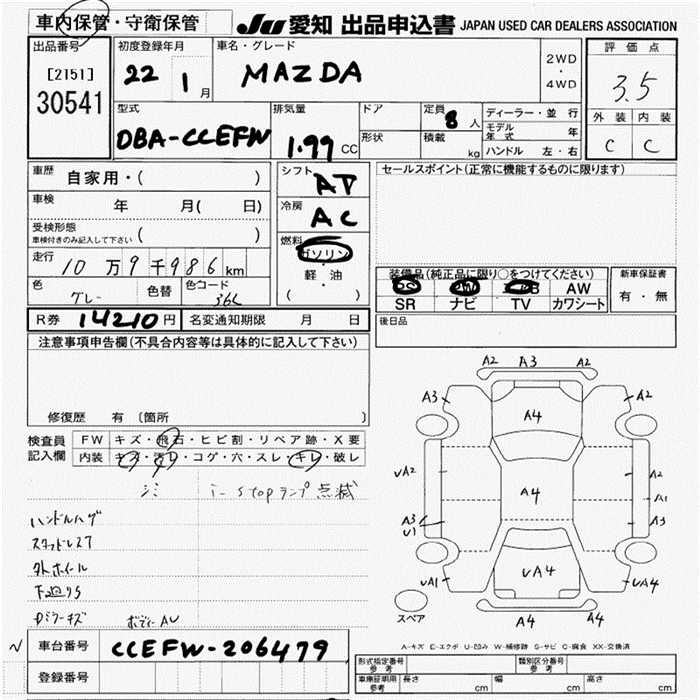 車内保管・守衛保管
JU 愛知 出品申込書 JAPAN USED CAR DEALERS ASSOCIATION
出品番号
[2151]
30541
初度登録年月
22 1 月
車名・グレード
MAZDA
2WD
・
4WD
評価点
3.5
外装 内装
C C
型式
DBA-CCEFW
排気量
1.99 CC
ドア
形状
定員 8 人
積載 kg
ディーラー・並行
モデル年式 年
ハンドル 左・右
車歴 自家用・( )
車検 年 月( 日)
受検形態
車検付きのみ記入して下さい ( )
走行 10万9千986km
色 グレー 色替 色コード 36C
シフト AT
冷房 AC
燃料
ガソリン
・
軽・油
( )
セールスポイント(正常に機能するものに限ります)
装備品(純正品に限り○をつけてください)
PS PW AB AW
SR ナビ TV カワシート
新車保証書
有・無
R券 14210円 名変通知期限 月 日
後日品
注意事項申告欄(不具合内容等は具体的に記入して下さい)
修復歴 有 〔箇所 〕
検査員記入欄
FW キズ・飛石・ヒビ割・リペア跡・X要
内装 キズ・汚レ・コゲ・穴・スレ・キレ・破レ
シミ i-stopランプ点滅
ハンドルハゲ
スタッドレスT
外ホイール
下廻りS
Dミラーキズ ボディーAU
N
車台番号 CCEFW-206479
登録番号
A2 A3 A2
A3 A4 A2
UA2 A4 A2
A1
A3 A3
U1
UA1 UA4 UA4
スペア
A4 A4
A-キズ E-エクボ U-凹み W-補修跡 S-サビ C-腐食 XX-交換済
形式指定番号
参考
類別区分番号
参考
車庫証明用
参考
長さ cm 幅 cm 高さ cm